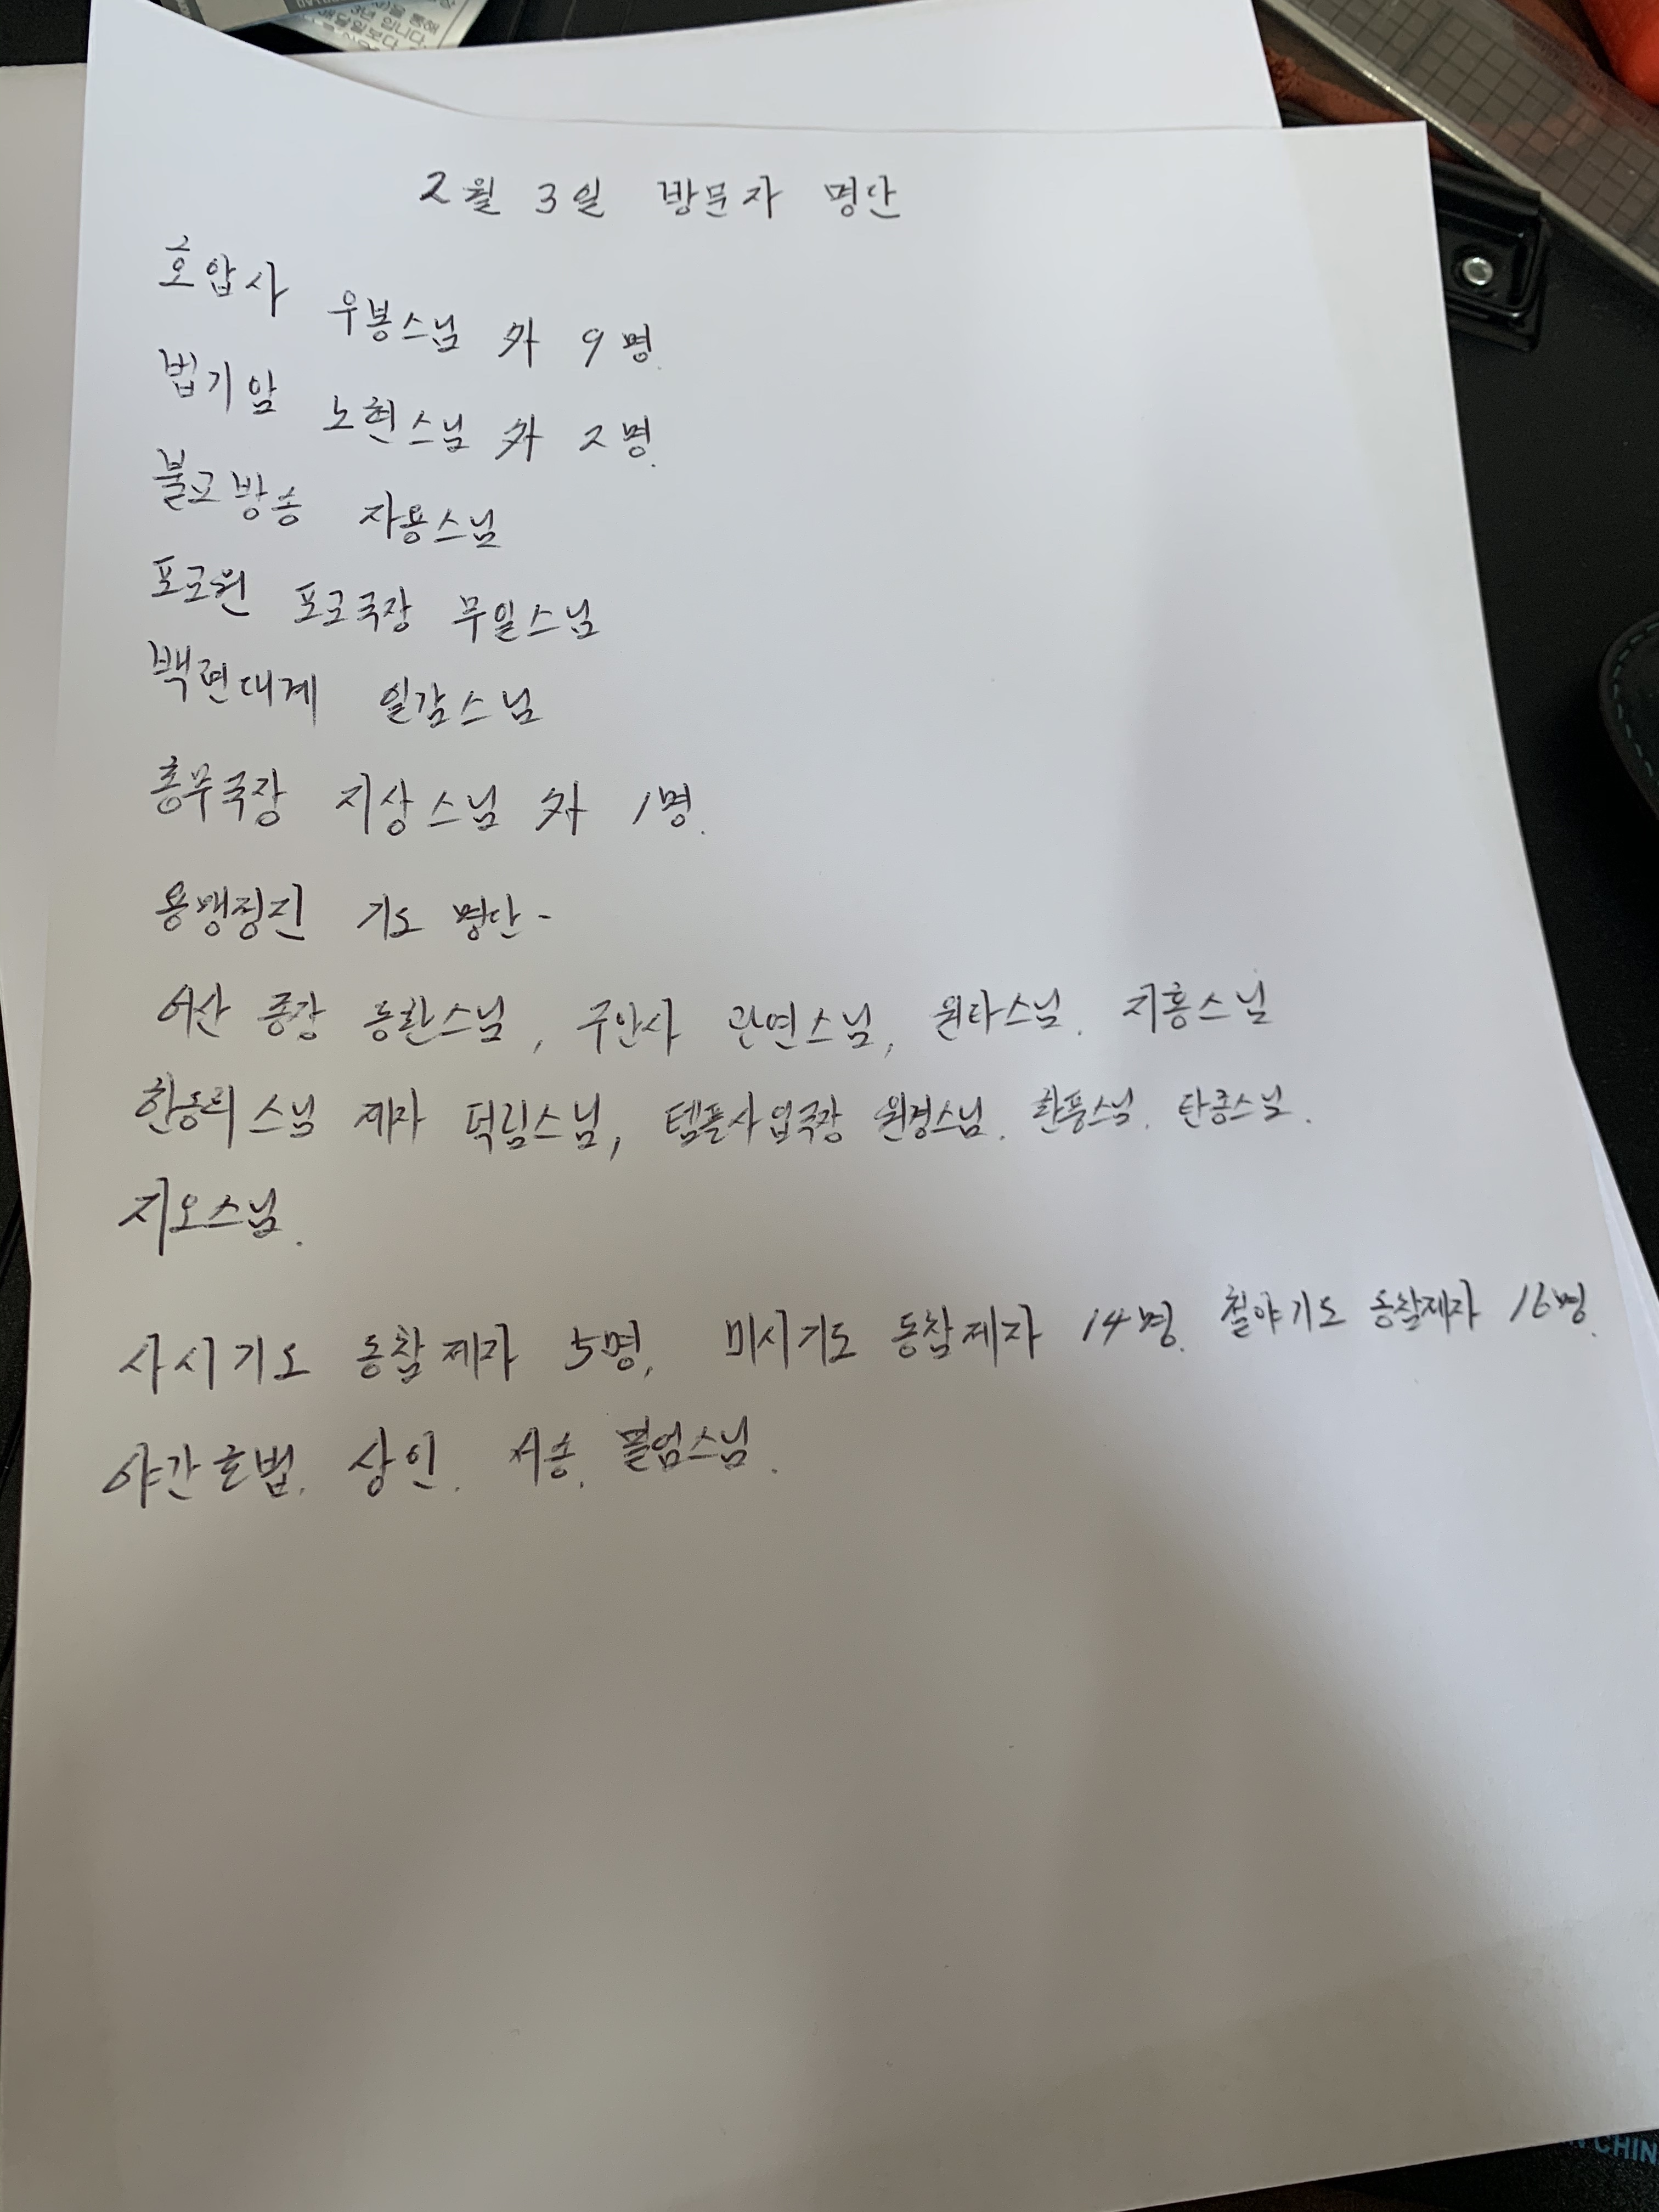 3년 입니다.
2월 3일 방문자 명단
호압사 우봉스님 外 9명.
법기암 노현스님 外 2명.
불교방송 자용스님
포교원 포교국장 무일스님
백련대계 일감스님
총무국장 지상스님 外 1명.
용맹정진 기도 명단-
어산 종장 동환스님, 구안사 관연스님, 원타스님. 지홍스님
한동희스님 제자 덕림스님, 템플사업국장 원경스님. 한풍스님. 탄종스님.
지오스님.
사시기도 동참제자 5명, 미시기도 동참제자 14명. 철야기도 동참제자 16명.
야간호법. 상인. 서송. 필엄스님.
CHIN